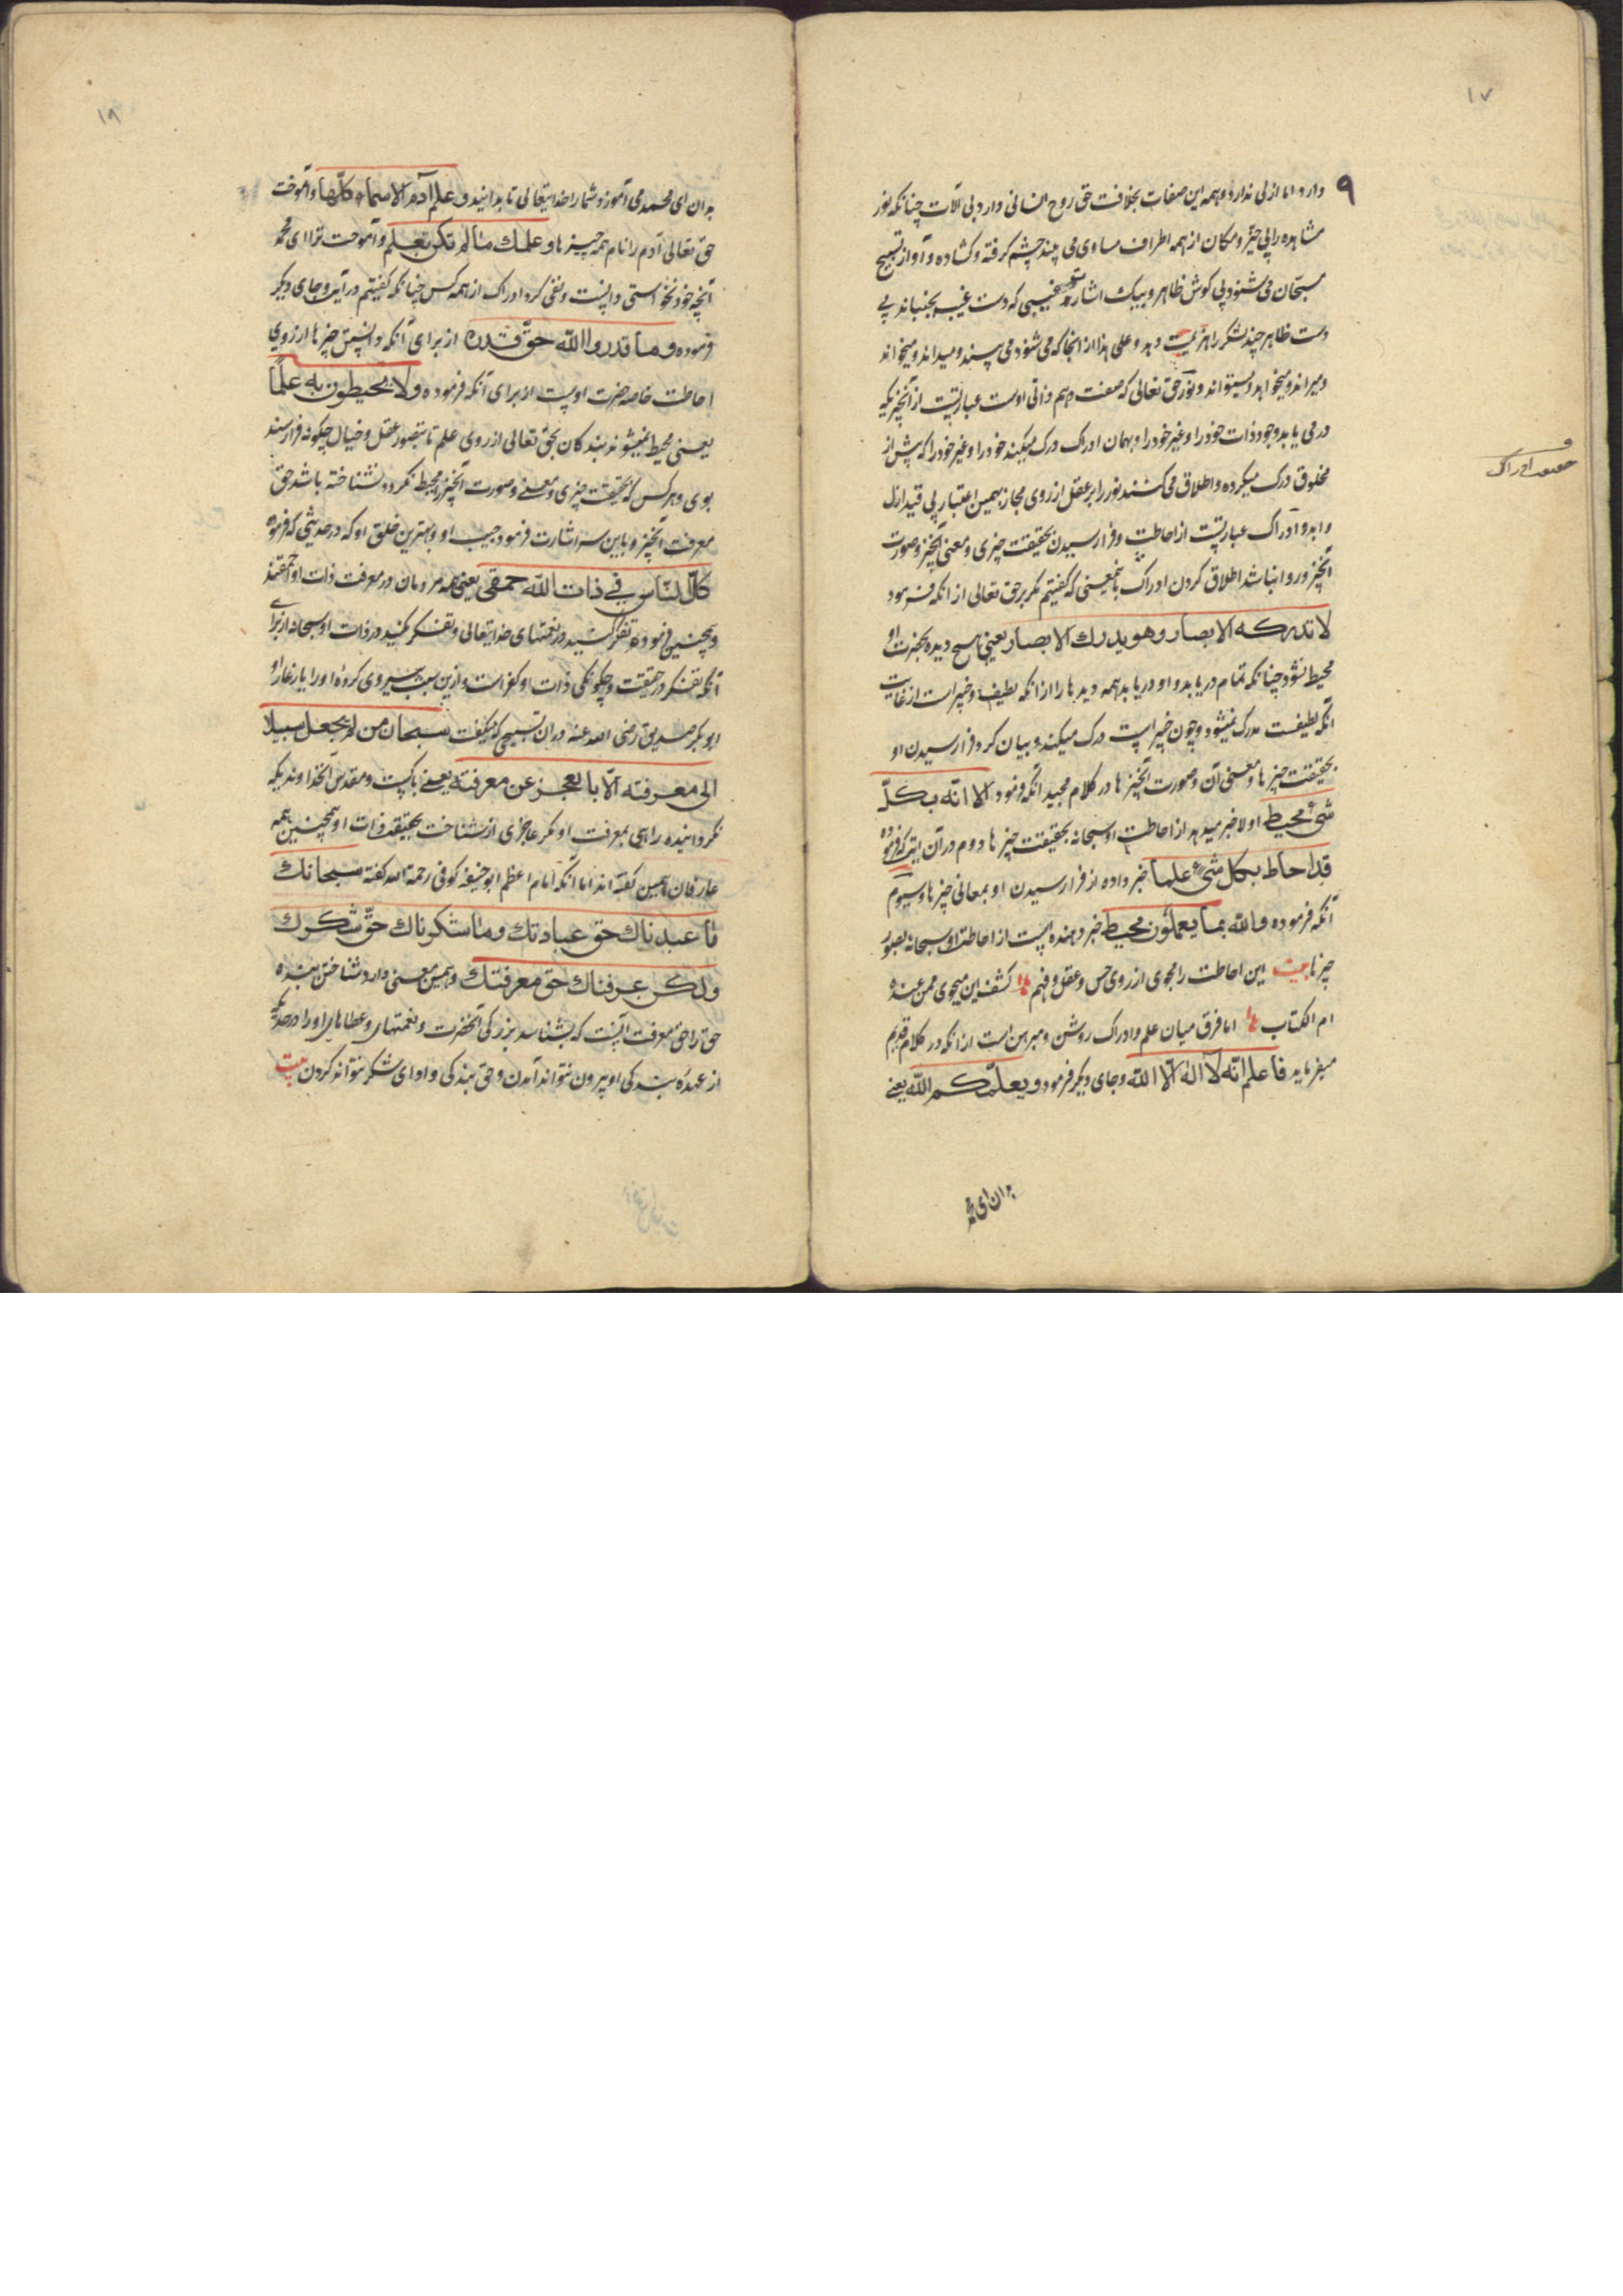 ۱۷
۹
دارد اما ازلی ندارد و همه این صفات بخلافت حق روح انسانی دارد بی آلات چنانکه نور
مشاهده را بی حیّز و مکان از همه اطراف مساوی می بیند چشم گرفته و کشاده و آواز تسبیح
مسبّحان می شنود بی گوش ظاهر و بیک اشارت غیبی که دست غیب بجنباند بی
دست ظاهر چند لشکر را هزیمت دهد و علی هذا از انجا که می شنود می بیند و میداند و میخواند
و میراند و میخواهد و میتواند و نور حق تعالی که صفت و هم ذاتی اوست عبارتیست از آنچیزیکه
در می یابد وجود ذات خود را و غیر خود را و بهمان ادراک درک میکند خود را و غیر خود را که پیش از
مخلوق درک میکرده و اطلاق می کنند نور را بر عقل از روی مجاز بهمین اعتبار بی قید ازل
و ابد و ادراک عبارتیست از احاطت و فرا رسیدن بحقیقت چیزی و معنی آنچیز و صورت
آنچیز و روا نباشد اطلاق کردن ادراک باینمعنی که گفتیم مگر بر حق تعالی از آنکه فرمود
لا تدركه الابصار وهو يدرك الابصار یعنی هیچ دیده بحضرت او
محیط نشود چنانکه تمام دریابد و او دریابد همه دیدها را از آنکه لطیف و خبیر است از غایت
آنکه لطیفست مدرک نمیشود و چون خبیر است درک میکند و بیان کرد فرا رسیدن او
بحقیقت چیزها و معنی آن و صورت آنچیزها در کلام مجید آنکه فرمود الا انه بكلّ
شيء محيط اولا خبر میدهد از احاطت او سبحانه بحقیقت چیزها دوم در آن آیت که فرموده
قد احاط بكل شيء علما خبر داده از فرا رسیدن او بمعانی چیزها و سیوم
آنکه فرموده والله بما يعملون محيط خبر دهنده است از احاطت او سبحانه بصور
چیزها بیت این احاطت را مجوی از روی حس و عقل و فهم کشف این میجوی ممن عنده
ام الکتاب اما فرق میان علم و ادراک روشن و مبرهن است از آنکه در کلام قدیم
میفرماید فاعلم انّه لا اله الا الله و جای دیگر فرمود و يعلّمكم الله یعنی
بدان ای محمد
ادراک
۱۸
بدان ای محمد می آموزد شما را خدایتعالی تا بدانید و علم آدم الاسماء كلّها و آموخت
حق تعالی آدم را نام همه چیزها و علمك ما لم تكن تعلم و آموخت ترا ای محمد
آنچه خود نخواستی دانست و نفی کرد ادراک از همه کس چنانکه گفتیم در آیت و جای دیگر
فرموده وما قدروا الله حقّ قدره از برای آنکه دانستن چیزها از روی
احاطت خاصه حضرت اوست از برای آنکه فرموده ولا يحيطون به علمًا
یعنی محیط نمیشوند بندکان بحق تعالی از روی علم تا بتصور عقل و خیال چگونه فرا رسند
بوی و هر کس که بحقیقت چیزی و معنی و صورت آنچیز محیط نکردد نشناخته باشد حق
معرفت آنچیز و باین سه اشارت فرمود حبیب او و بهترین خلق او که در حدیثی که فرموده
كلّ الناس في ذات الله حمقى یعنی همه مردمان در معرفت ذات او احمقند
و همچنین فرموده تفکر کنید در نعمتهای خدایتعالی و تفکر مکنید در ذات او سبحانه از برای
آنکه تفکر در حقیقت و چگونگی ذات او کفر است و ازین سبب پیروی کرده او را یار غار او
ابو بکر صدیق رضی الله عنه در آن تسبیحی که میگفت سبحان من لم يجعل سبيلا
الى معرفته الّا بالعجز عن معرفته یعنی پاکست و مقدس آنخداوندیکه
نگردانیده راهی بمعرفت او مگر عاجزی از شناخت بحقیقت ذات او و همچنین همه
عارفان همین گفته اند اما آنکه امام اعظم ابو حنیفه کوفی رحمة الله گفته سبحانك
ما عبدناك حق عبادتك وما شكرناك حقّ شكرك
ولكن عرفناك حق معرفتك و همین معنی دارد شناختن بنده
حق را حق معرفت آنست که بشناسد بزرگی آنحضرت و نعمتهای و عطاهای او را در حدیکه
از عهده بندگی او بیرون نتواند آمدن و حق بندگی و ادای شکر نتواند کردن بیت